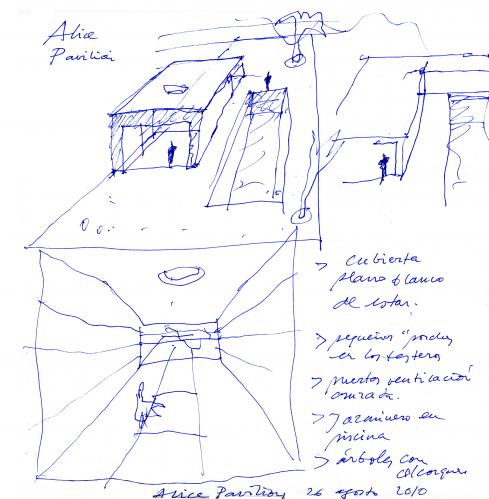 Alice
Pavilion
> cubierta
plano blanco
de estar.
> pequeños "porches
en los testeros
> puertas ventilación
cruzada.
> Jazminero en
piscina
> árboles con
alcorques
Alice Pavilion 26 agosto 2010